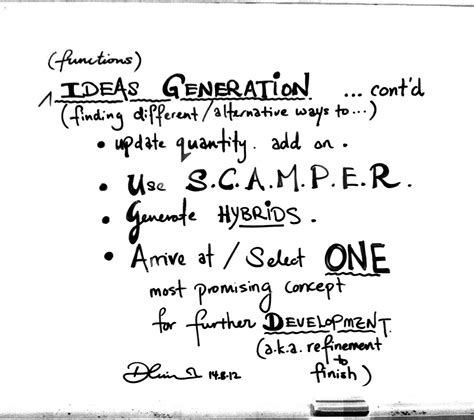 (functions)
IDEAS GENERATION ... cont'd
(finding different/alternative ways to...)
• update quantity. add on.
• Use S.C.A.M.P.E.R.
• Generate HYBRIDS.
• Arrive at / Select ONE
most promising concept
for further DEVELOPMENT.
(a.k.a. refinement
to
finish)
14.8.12